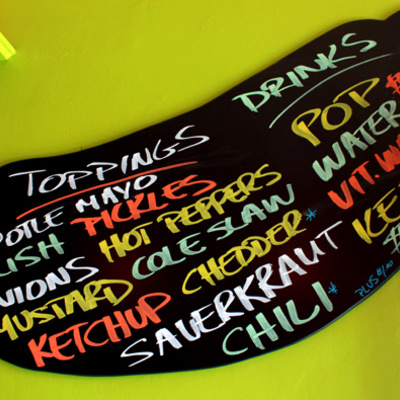 TOPPINGS
POTLE MAYO
LISH PICKLES
NIONS HOT PEPPERS
MUSTARD COLE SLAW
KETCHUP CHEDDER*
SAUERKRAUT
CHILI*
DRINKS
POP
WATER
VIT. W
ICE
PLUS